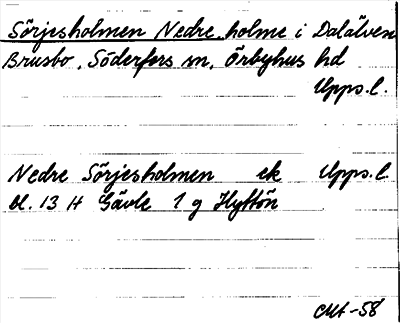 Sörjesholmen Nedre holme i Dalälven
Brusbo, Söderfors sn, Örbyhus hd
Upps. l.
Nedre Sörjesholmen ek Upps. l.
bl. 13 H Gävle 1 g Hyttön
CMt -58